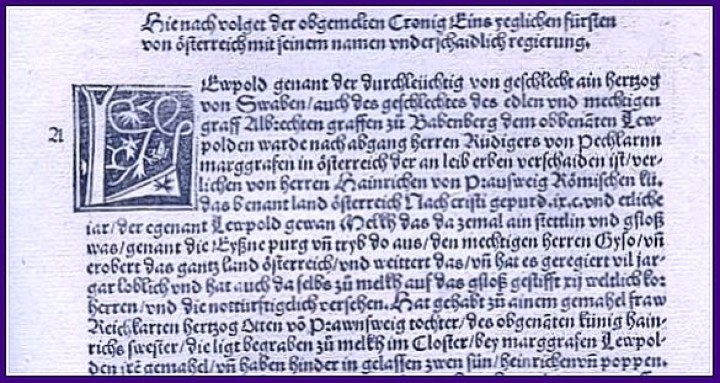 Hie nach volget der obgemelten Cronig Eins yeglichen fürsten
von österreich mit seinem namen vnderschaidlich regierung.
A
LEwpold genant der durchleüchtig von geschlecht ain hertzog
von Swaben/auch des geschlechtes des edlen vnd mechtigen
graff Albrechten graffen zů Babenberg dem obbenãten Lew-
polden warde nach abgang herren Růdigers von Pechlarnn
marggrafen in österreich der an leib erben verschaiden ist/ver-
lichen von herren Hainrichen von Prausweig Römischen kü.
das benant land österreich Nach cristi gepurd .ix.c.vnd etliche
iar/der egenant Lewpold gewan Melkh das da zemal ain stettlin vnd gsloß
was/genant die Eyßne purg vñ tryb do aus/den mechtigen herren Gyso/vñ
erobert das gantz land österreich/vnd weittert das/vñ hat es geregiert vil jar-
gar loblich vnd hat auch da selbs zů melkh auf das gsloß gestifft xij weltlich kor
herren/vnd die notturftigclich versehen. Hat gehabt zů ainem gemahel fraw
Reichkarten hertzog Otten võ Prawnsweig tochter/des obgenãten künig hain-
richs swester/die ligt begraben zů melkh im Closter/bey marggrafen Lewpol-
den irẽ gemahel/vñ haben hinder in gelassen zwen sün/heinrichen vñ poppen.